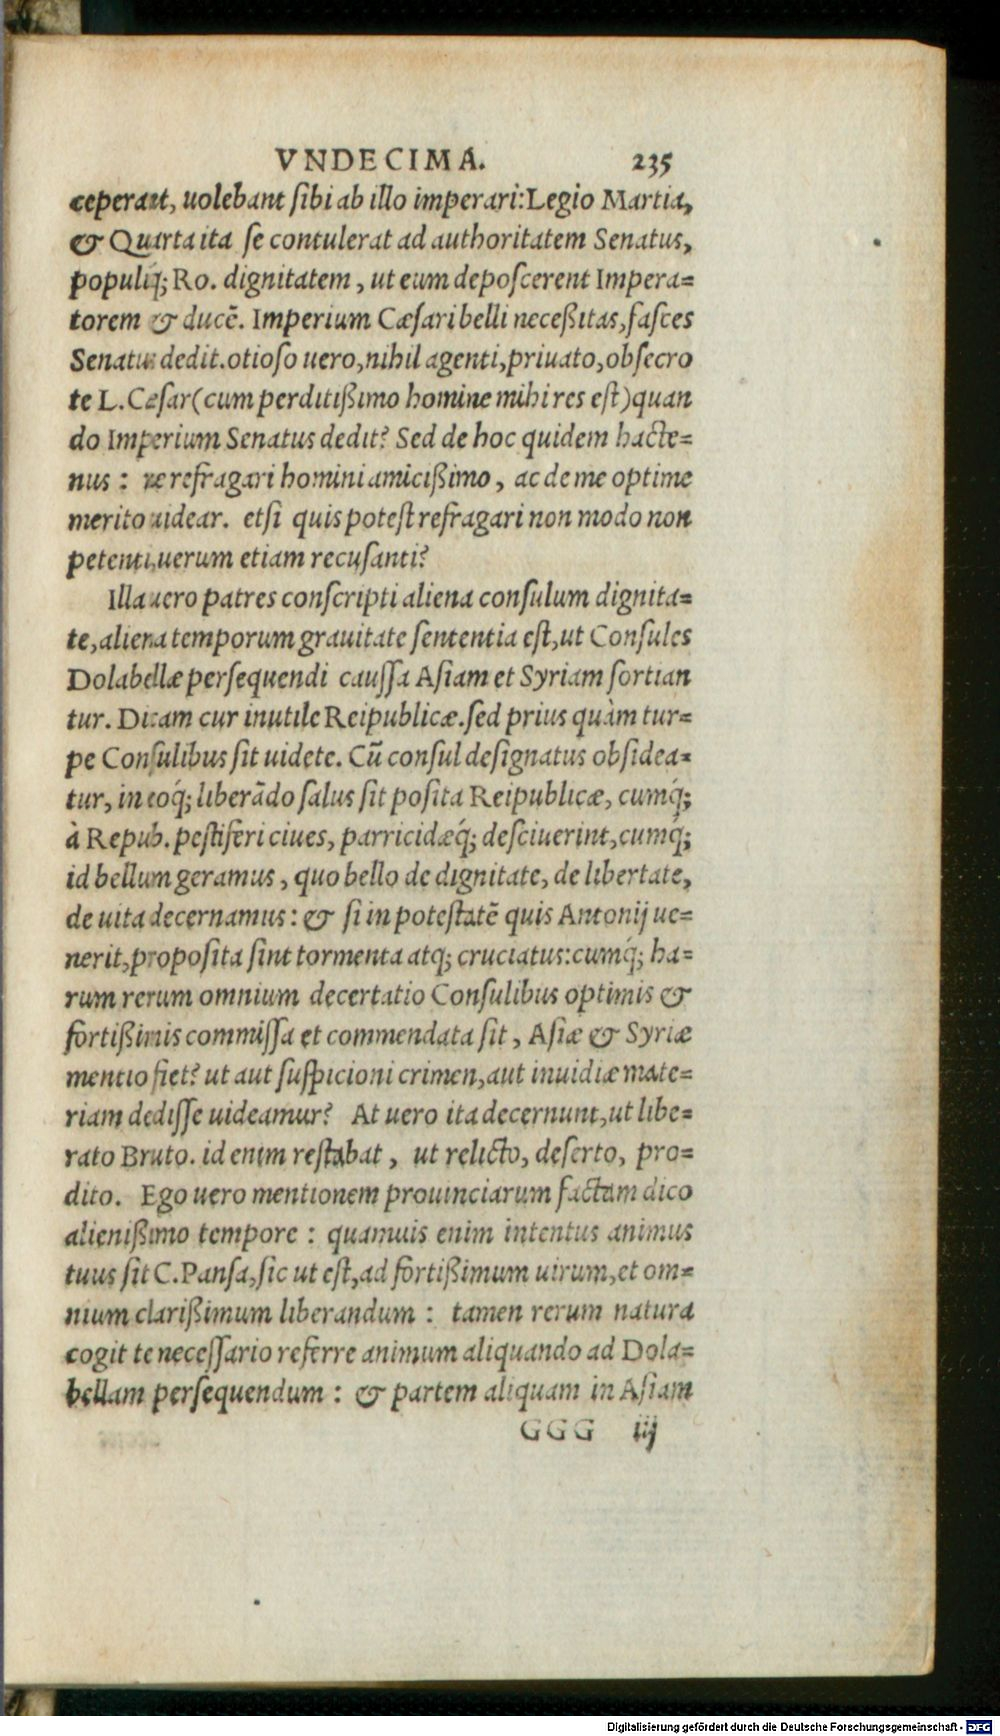 VNDECIMA. 235
ceperant, uolebant sibi ab illo imperari: Legio Martia,
& Quarta ita se contulerat ad authoritatem Senatus,
populiq́; Ro. dignitatem, ut eum deposcerent Impera=
torem & ducē. Imperium Cæsari belli neceßitas, fasces
Senatus dedit. otioso uero, nihil agenti, priuato, obsecro
te L. Cesar (cum perditißimo homine mihi res est) quan
do Imperium Senatus dedit? Sed de hoc quidem hacte=
nus: ne refragari homini amicißimo, ac de me optime
merito uidear. etsi quis potest refragari non modo non
petenti, uerum etiam recusanti?
Illa uero patres conscripti aliena consulum dignita=
te, aliena temporum grauitate sententia est, ut Consules
Dolabellæ persequendi caussa Asiam et Syriam sortian
tur. Dicam cur inutile Reipublicæ. sed prius quàm tur=
pe Consulibus sit uidete. Cū consul designatus obsidea=
tur, in eoq́; liberādo salus sit posita Reipublicæ, cumq́;
à Repub. pestiferi ciues, parricidæq́; desciuerint, cumq́;
id bellum geramus, quo bello de dignitate, de libertate,
de uita decernamus: & si in potestatē quis Antonij ue=
nerit, proposita sint tormenta atq; cruciatus: cumq́; ha=
rum rerum omnium decertatio Consulibus optimis &
fortißimis commissa et commendata sit, Asiæ & Syriæ
mentio fiet? ut aut suspicioni crimen, aut inuidiæ mate=
riam dedisse uideamur? At uero ita decernunt, ut libe=
rato Bruto. id enim restabat, ut relicto, deserto, pro=
dito. Ego uero mentionem prouinciarum factam dico
alienißimo tempore: quamuis enim intentus animus
tuus sit C. Pansa, sic ut est, ad fortißimum uirum, et om=
nium clarißimum liberandum: tamen rerum natura
cogit te necessario referre animum aliquando ad Dola=
bellam persequendum: & partem aliquam in Asiam
GGG iij
Digitalisierung gefördert durch die Deutsche Forschungsgemeinschaft - DFG